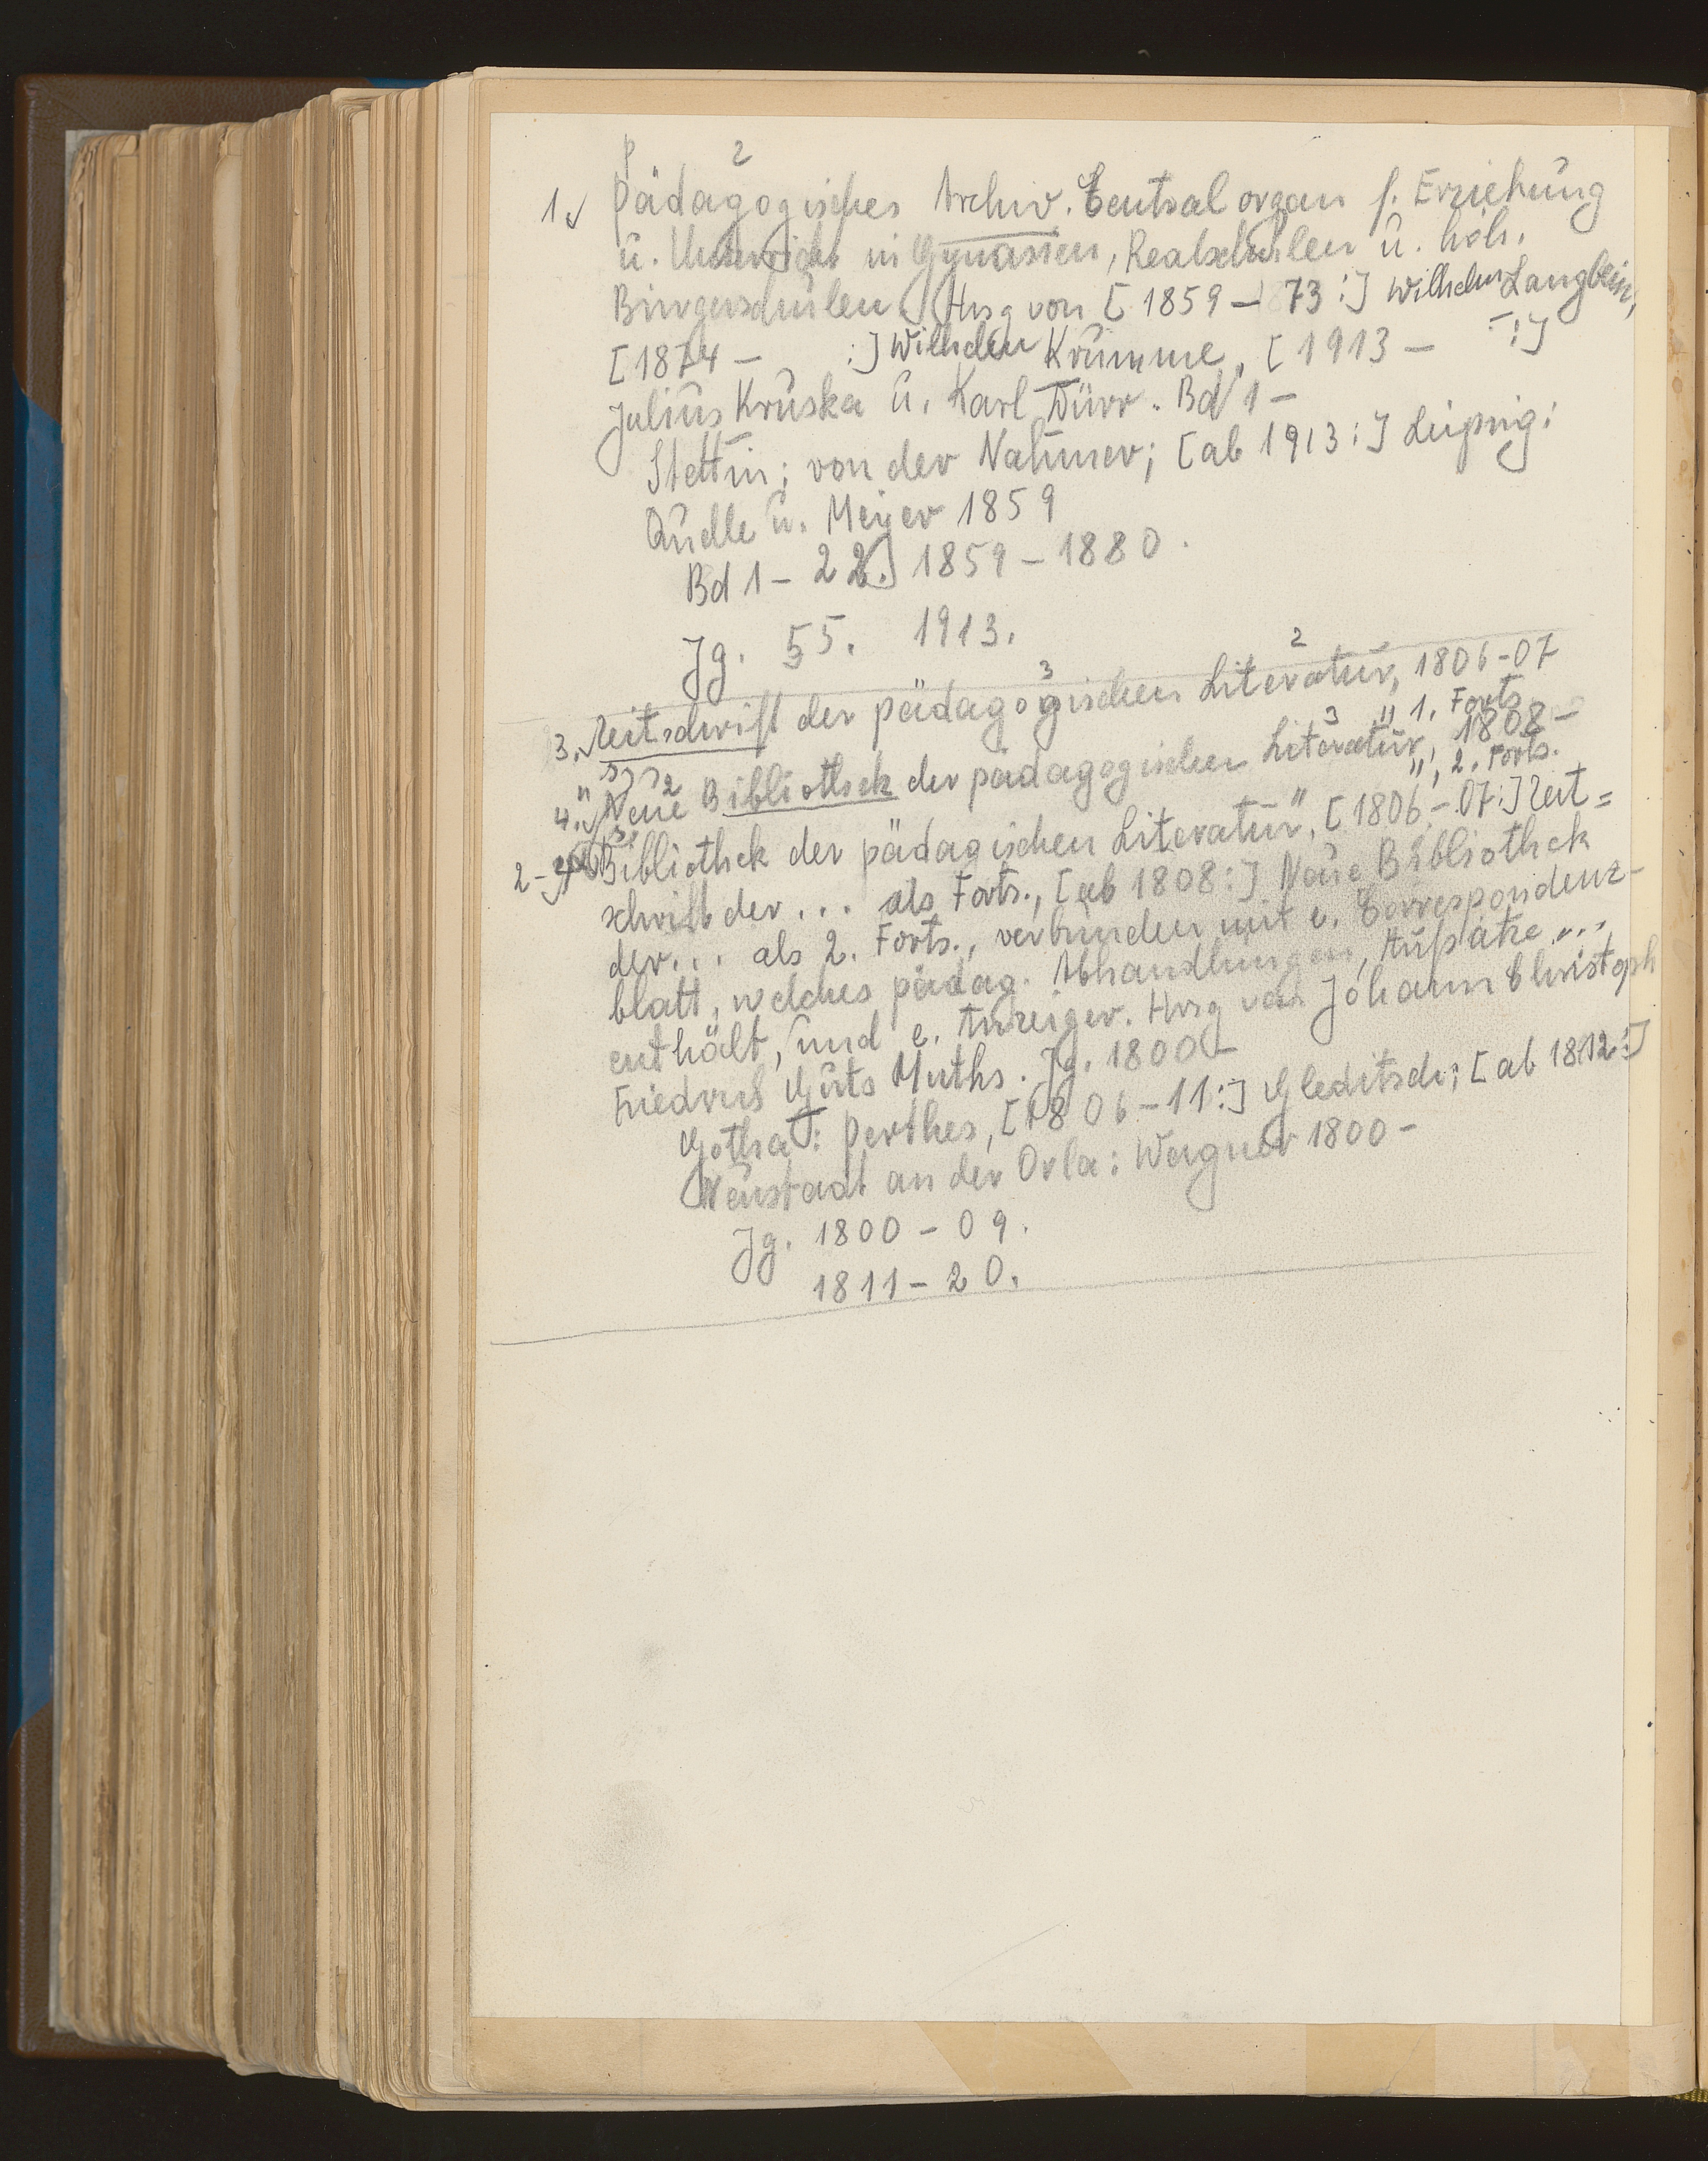 1. Pädagogisches Archiv. Centralorgan f. Erziehung
u. Unterricht in Gymnasien, Realschulen u. höh.
Bürgerschulen. Hrsg von [1859-73:] Wilhelm Langbein,
[1874- :] Wilhelm Krumme, [1913- :]
Julius Kruska u. Karl Dürr. Bd 1-
Stettin: von der Nahmer; [ab 1913:] Leipzig:
Quelle u. Meyer 1859
Bd 1-22. 1859-1880.
Jg. 55. 1913.
3. Zeitschrift der pädagogischen Literatur, 1806-07
" 1. Forts.
4. Neue Bibliothek der pädagogischen Literatur, 1808-
", 2. Forts.
2- Bibliothek der pädagischen Literatur", [1806-07:] Zeit=
schrift der ... als Forts., [ab 1808:] Neue Bibliothek
der ... als 2. Forts., verbunden mit e. Correspondenz-
blatt, welches pädag. Abhandlungen, Aufsätze ...
enthält, und e. Anzeiger. Hrsg von Johann Christoph
Friedrich Guts Muths. Jg. 1800-
Gotha: Perthes, [1806-11:] Gleditsch; [ab 1812:]
Neustadt an der Orla: Wagner 1800-
Jg. 1800-09.
1811-20.